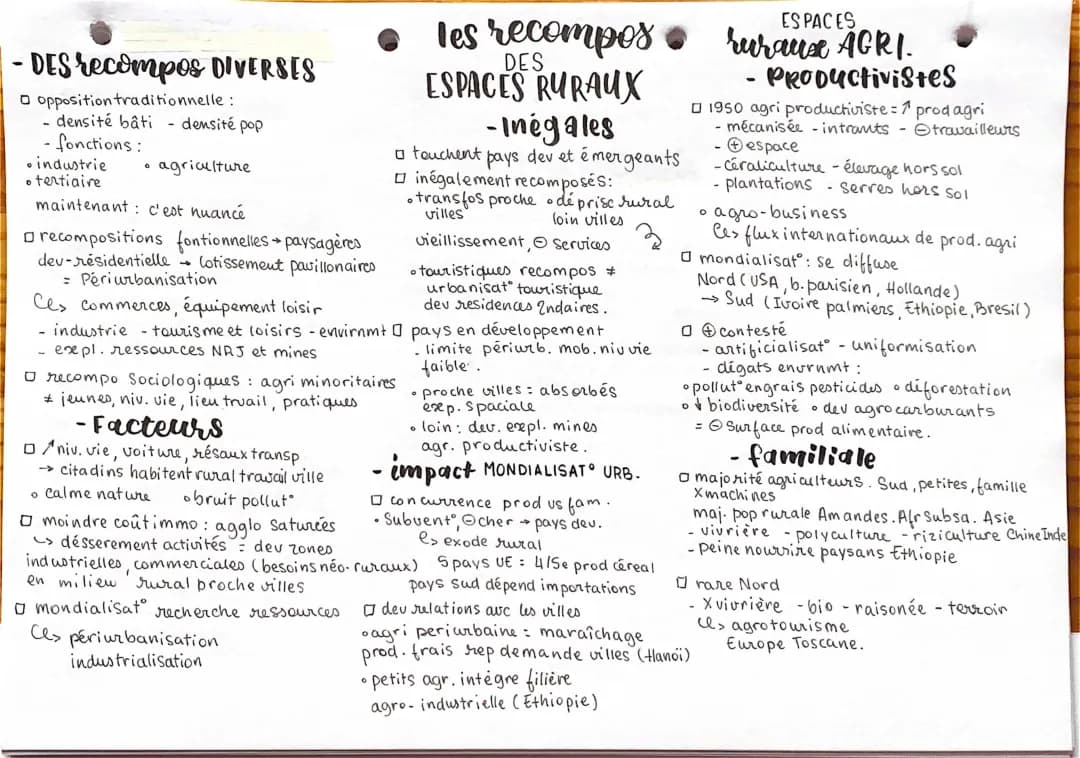 les recompos
DES
ESPACES RURAUX
- DES recompos DIVERSES
□ opposition traditionnelle :
- densité bâti - densité pop
- fonctions :
• industrie • agriculture
• tertiaire
maintenant : c'est nuancé
□ recompositions fontionnelles → paysagères
dev-résidentielle → lotissement pavillonaires
= Périurbanisation
↳ commerces, équipement loisir
- industrie - tourisme et loisirs - envirnmt
- expl. ressources NRJ et mines
□ recompo Sociologiques : agri minoritaires
≠ jeunes, niv. vie, lieu travail, pratiques
- Facteurs
□ ↗ niv. vie, voiture, résaux transp
→ citadins habitent rural travail ville
• calme nature • bruit pollut°
□ moindre coût immo : agglo saturées
↳ désserement activités = dev zones
industrielles, commerciales (besoins néo-ruraux)
en milieu rural proche villes
□ mondialisat° recherche ressources
↳ périurbanisation
industrialisation
- Inégales
□ touchent pays dev et émergeants
□ inégalement recomposés:
• transfos proche • déprise rural
villes loin villes
vieillissement, ⊖ services
• touristiques recompos ≠
urbanisat° touristique
dev residences 2ndaires.
□ pays en développement
- limite périurb. mob. niv vie
faible.
• proche villes = absorbés
exp. spaciale
• loin : dev. expl. mines
agr. productiviste.
- impact MONDIALISAT° URB.
□ concurrence prod vs fam.
• Subvent°, ⊖ cher → pays dev.
↳ exode rural
5 pays UE = 4/5e prod céreal
pays sud dépend importations
□ dev relations avc les villes
• agri periurbaine = maraîchage
prod. frais rep demande villes (Hanoï)
• petits agr. intègre filière
agro-industrielle (Ethiopie)
ESPACES
ruraux AGRI.
- PRODUCTIVISTES
□ 1950 agri productiviste = ↗ prod agri
- mécanisée - intrants - ⊖ travailleurs
- ⊕ espace
- céraliculture - élevage hors sol
- plantations - serres hors sol
• agro-business
↳ flux internationaux de prod. agri
□ mondialisat° : se diffuse
Nord (USA, b. parisien, Hollande)
→ Sud (Ivoire palmiers, Ethiopie, Bresil)
□ ⊕ contesté
- artificialisat° - uniformisation
- dégats envrnmt :
• pollut° engrais pesticides • déforestation
• ↓ biodiversité • dev agrocarburants
= ⊖ surface prod alimentaire.
- familiale
□ majorité agriculteurs. Sud, petites, famille
X machines
maj. pop rurale Amandes. Afr Subsa. Asie
- vivrière - polyculture - riziculture Chine Inde
- peine nourrire paysans Ethiopie
□ rare Nord
- X vivrière - bio - raisonée - terroir
↳ agrotourisme
Europe Toscane.